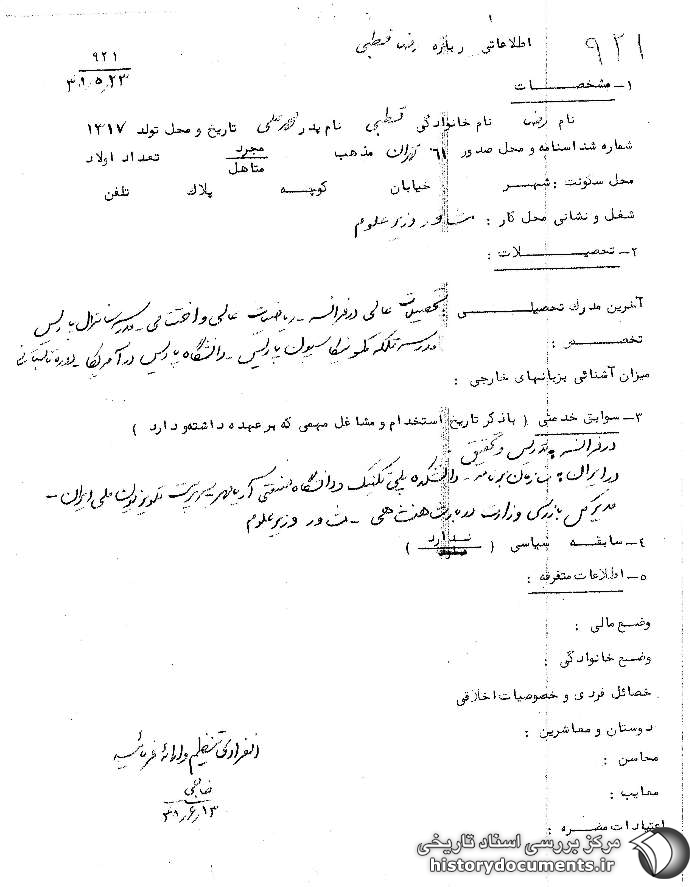 ۱
اطلاعاتی درباره رضا قطبی
۹۲۱
۹۲۱
۳۱،۵،۲۳
۱- مشخصات
نام رضا نام خانوادگی قطبی نام پدر تاریخ و محل تولد ۱۳۱۷
شماره شناسنامه و محل صدور ۶۱ تهران مذهب مجرد متاهل تعداد اولاد
محل سکونت: شهر خیابان کوچه پلاک تلفن
شغل و نشانی محل کار: مشاور وزیر علوم
۲- تحصیلات:
آخرین مدرک تحصیلی تحصیلات عالی در فرانسه - ریاضیات عالی و اختصاصی - مدرسه سانترال پاریس
تخصص: مدرسه تله کمونیکاسیون پاریس - دانشگاه پاریس در آمریکا - دوره
میزان آشنائی بزبانهای خارجی:
۳- سوابق خدمتی (باذکر تاریخ استخدام و مشاغل مهمی که برعهده داشته و دارد)
در فرانسه به تدریس و تحقیق
در ایران به سازمان برنامه - دانشکده پلی تکنیک و دانشگاه صنعتی آریامهر سرپرست تلویزیون ملی ایران -
مدیر کل بازرسی وزارت دربار شاهنشاهی - مشاور وزیر علوم
۴- سابقه سیاسی (ندارد)
۵- اطلاعات متفرقه:
وضع مالی:
وضع خانوادگی:
خصائل فردی و خصوصیات اخلاقی
دوستان و معاشرین:
محاسن:
معایب:
اعتیادات مضره:
انفرادی تنظیم و ارائه فرمائید
۳۱،۶،۱۳
مرکز بررسی اسناد تاریخی
historydocuments.ir